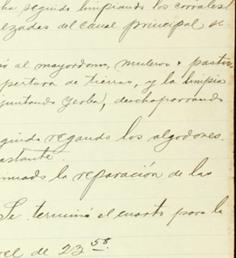 ha seguido limpiando los corrales
ezadas del canal principal se
al mayordomo, muleros y pastor
apertura de tierras, y la limpia
juntando yerba, deschaparrando
eguido regando los algodones
astante.
nuado la reparación de las
Se terminó el cuarto para la
vel de 23 58.